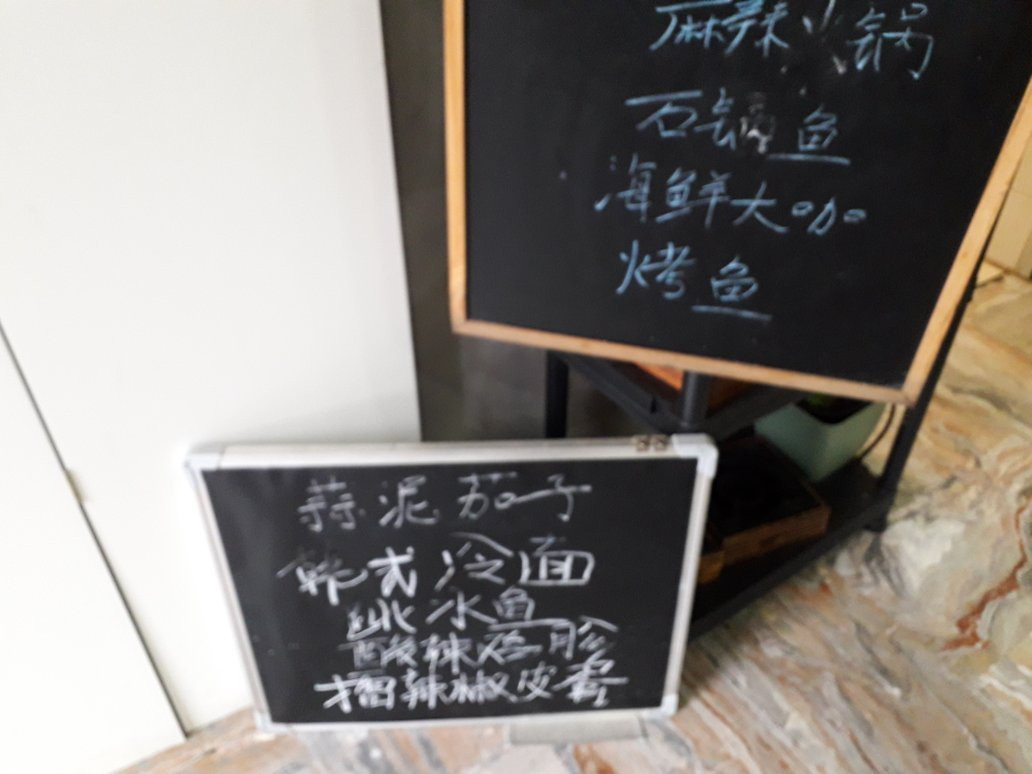 麻辣火锅
石锅鱼
海鲜大咖
烤鱼
蒜泥茄子
韩式冷面
跳冰鱼
酸辣鸡胗
擂辣椒皮蛋